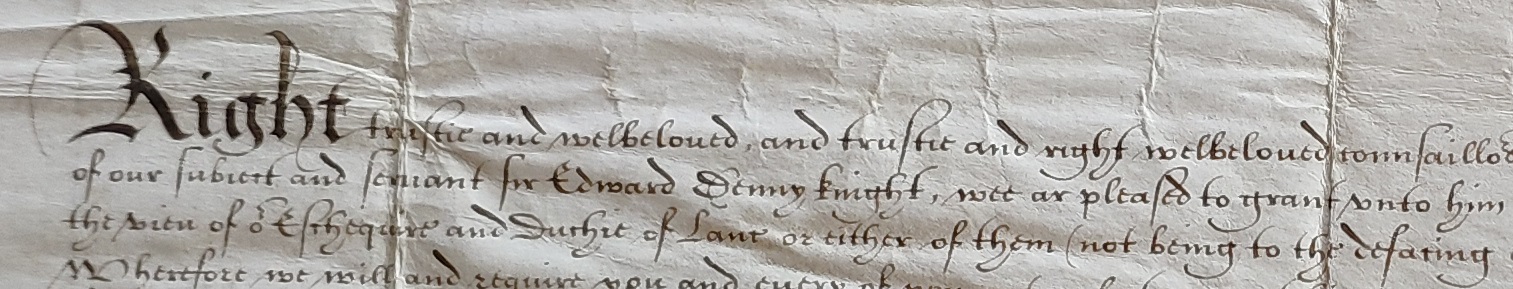 Right trustie and welbeloued, and trustie and right welbeloued counsaillo
of our subiect and seruant sir Edward Denny knight, wee ar pleased to grant vnto him
the vieu of or Eschequire and Duchie of Lanc or either of them (not being to the defacing
Wherefore we will and require you and euery of